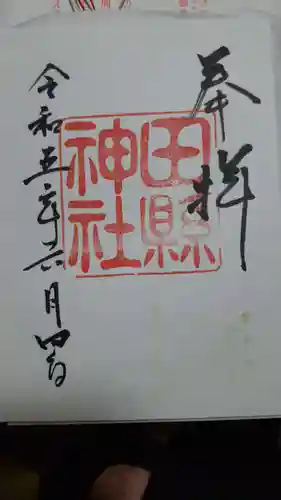 奉拝
田縣
神社
令和五年六月四日